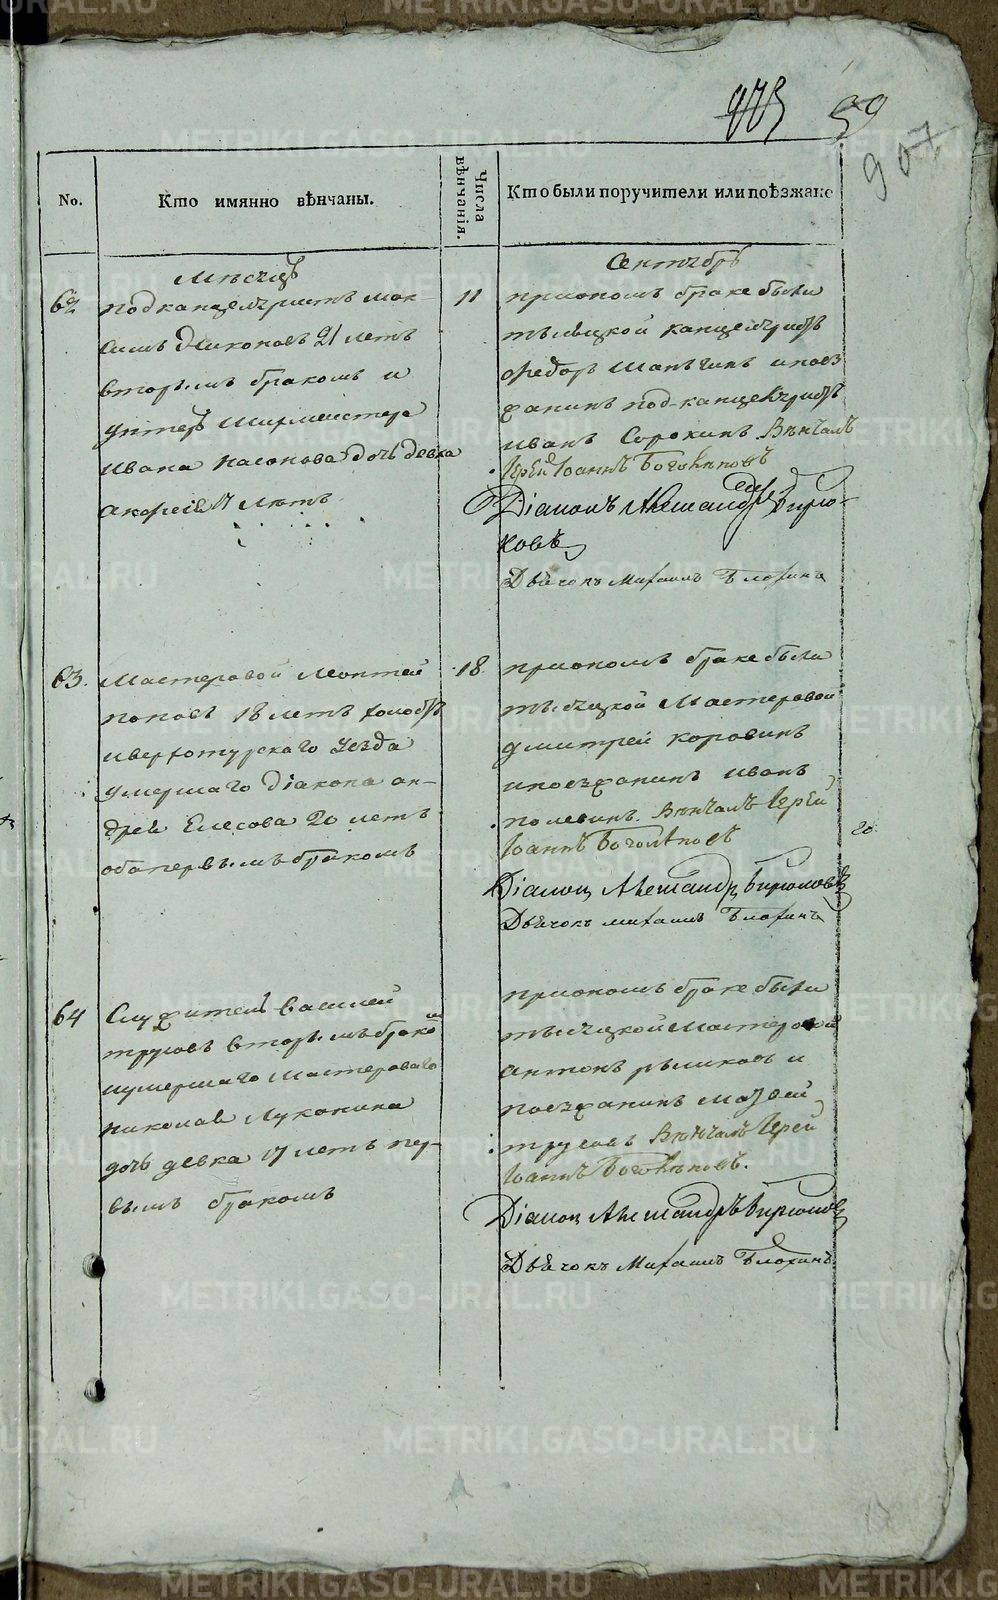 59
907
No.
Кто имянно вѣнчаны.
Числа вѣнчанія.
Кто были поручители или поѣзжане
Мѣсяцъ
Сентябрь
62
подканцеляристъ Мак-
симъ 21 летъ
вторымъ бракомъ и
унтеръ Шихмейстера
Ивана Насонова дочь девка
17 летъ
11
при ономъ браке были
тысяцкой канцеляристъ
Федоръ и поез
жанинъ под-канцеляристъ
Иванъ Сорокинъ Вѣнчалъ
Iерей Iоаннъ Боголѣповъ
Dіаконъ Александръ Бирю-
ковъ
Дьячокъ Михаилъ Блохинъ
63.
Мастеровой Леонтей
Поповъ 18 летъ
и верхотурскаго уезда
умершаго Dіакона Ан-
дрея 20 летъ
оба первымъ бракомъ
18
при ономъ браке были
тысяцкой Мастеровой
Дмитрей Коровинъ
и поезжанинъ Иванъ
Полевинъ. Вѣнчалъ Iерей
Iоаннъ Боголѣповъ
Dіаконъ Александръ Бирюковъ
Дьячокъ Михаилъ Блохинъ
64
Служитель Василей
Трусовъ вторымъ бракомъ
и умершаго Мастероваго
Николая Луконина
дочь девка 17 летъ пер-
вымъ бракомъ
при ономъ браке были
тысяцкой Мастеровой
Антонъ и
поезжанинъ
Трусовъ Вѣнчалъ Iерей
Iоаннъ Боголѣповъ.
Dіаконъ Александръ Бирюковъ
Дьячокъ Михаилъ Блохинъ
METRIKI.GASO-URAL.RU